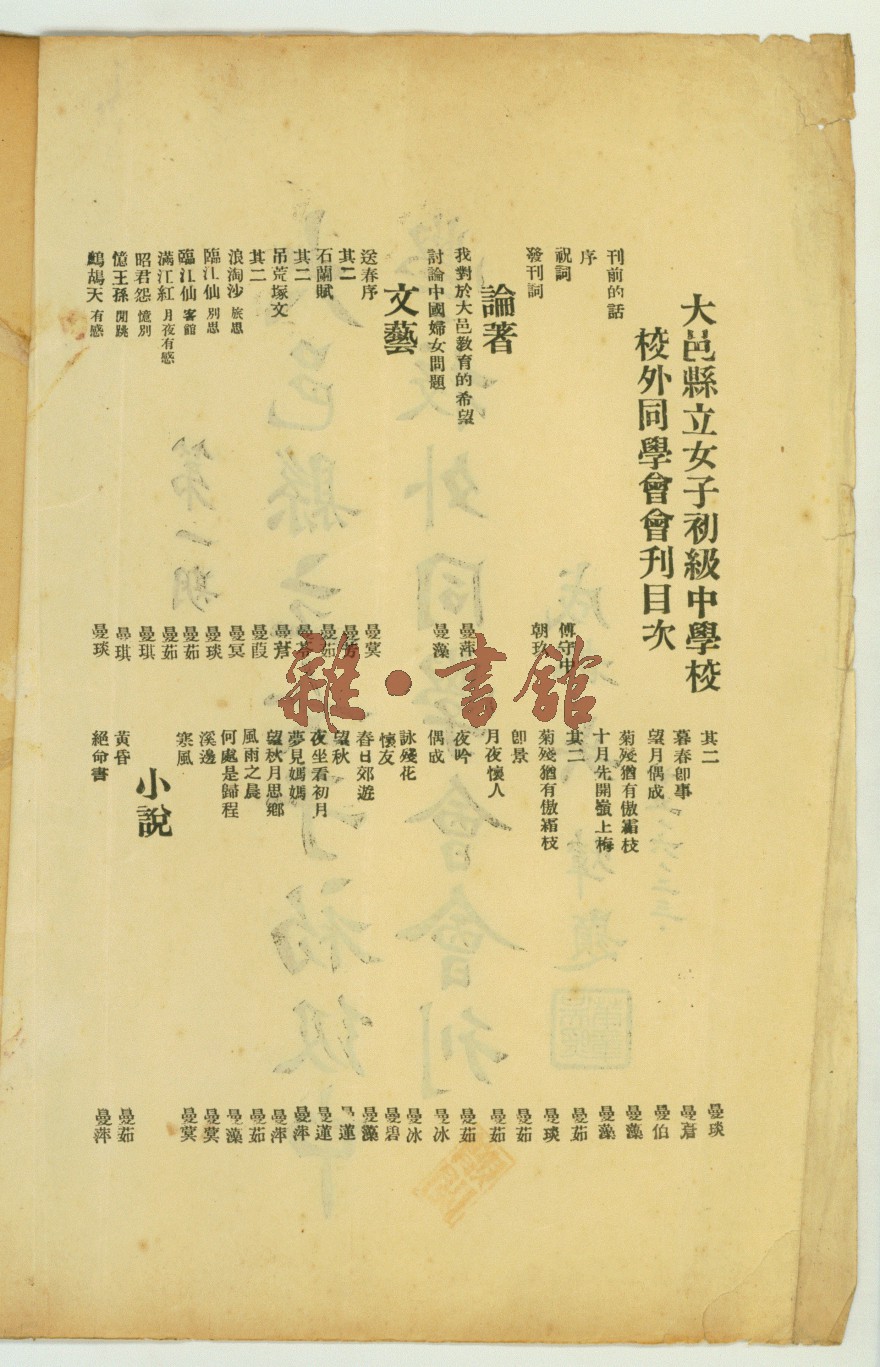 大邑縣立女子初級中學校
校外同學會會刊目次
刊前的話
序
祝詞 傅守中
發刊詞 朝玖
論著
我對於大邑教育的希望 曼萍
討論中國婦女問題 曼藻
文藝
送春序 曼蓂
其二
石蘭賦 曼茹
其二
吊荒塚文 曼蒼
其二 曼葭
浪淘沙 旅思 曼冥
臨江仙 別思 曼琰
臨江仙 客館 曼茹
滿江紅 月夜有感 曼茹
昭君怨 憶別 曼琪
憶王孫 閒跳 曼琪
鷓鴣天 有感 曼琰
其二 曼琰
暮春卽事 曼蒼
望月偶成 曼伯
菊殘猶有傲霜枝 曼藻
十月先開嶺上梅 曼藻
其二 曼茹
菊殘猶有傲霜枝 曼琰
卽景 曼茹
月夜懷人 曼茹
夜吟 曼茹
偶成 曼冰
詠殘花 曼冰
懷友 曼碧
春日郊遊 曼藻
望秋 蓮
夜坐看初月 曼蓮
夢見媽媽 曼萍
望秋月思鄉 曼萍
風雨之晨 曼茹
何處是歸程 曼藻
溪邊 曼蓂
寒風 曼蓂
小說
黃昏 曼茹
絕命書 曼萍
雜·書館